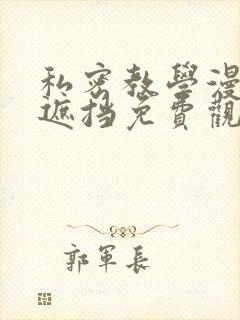 私密教學漫
遮挡免費觀
郭軍長